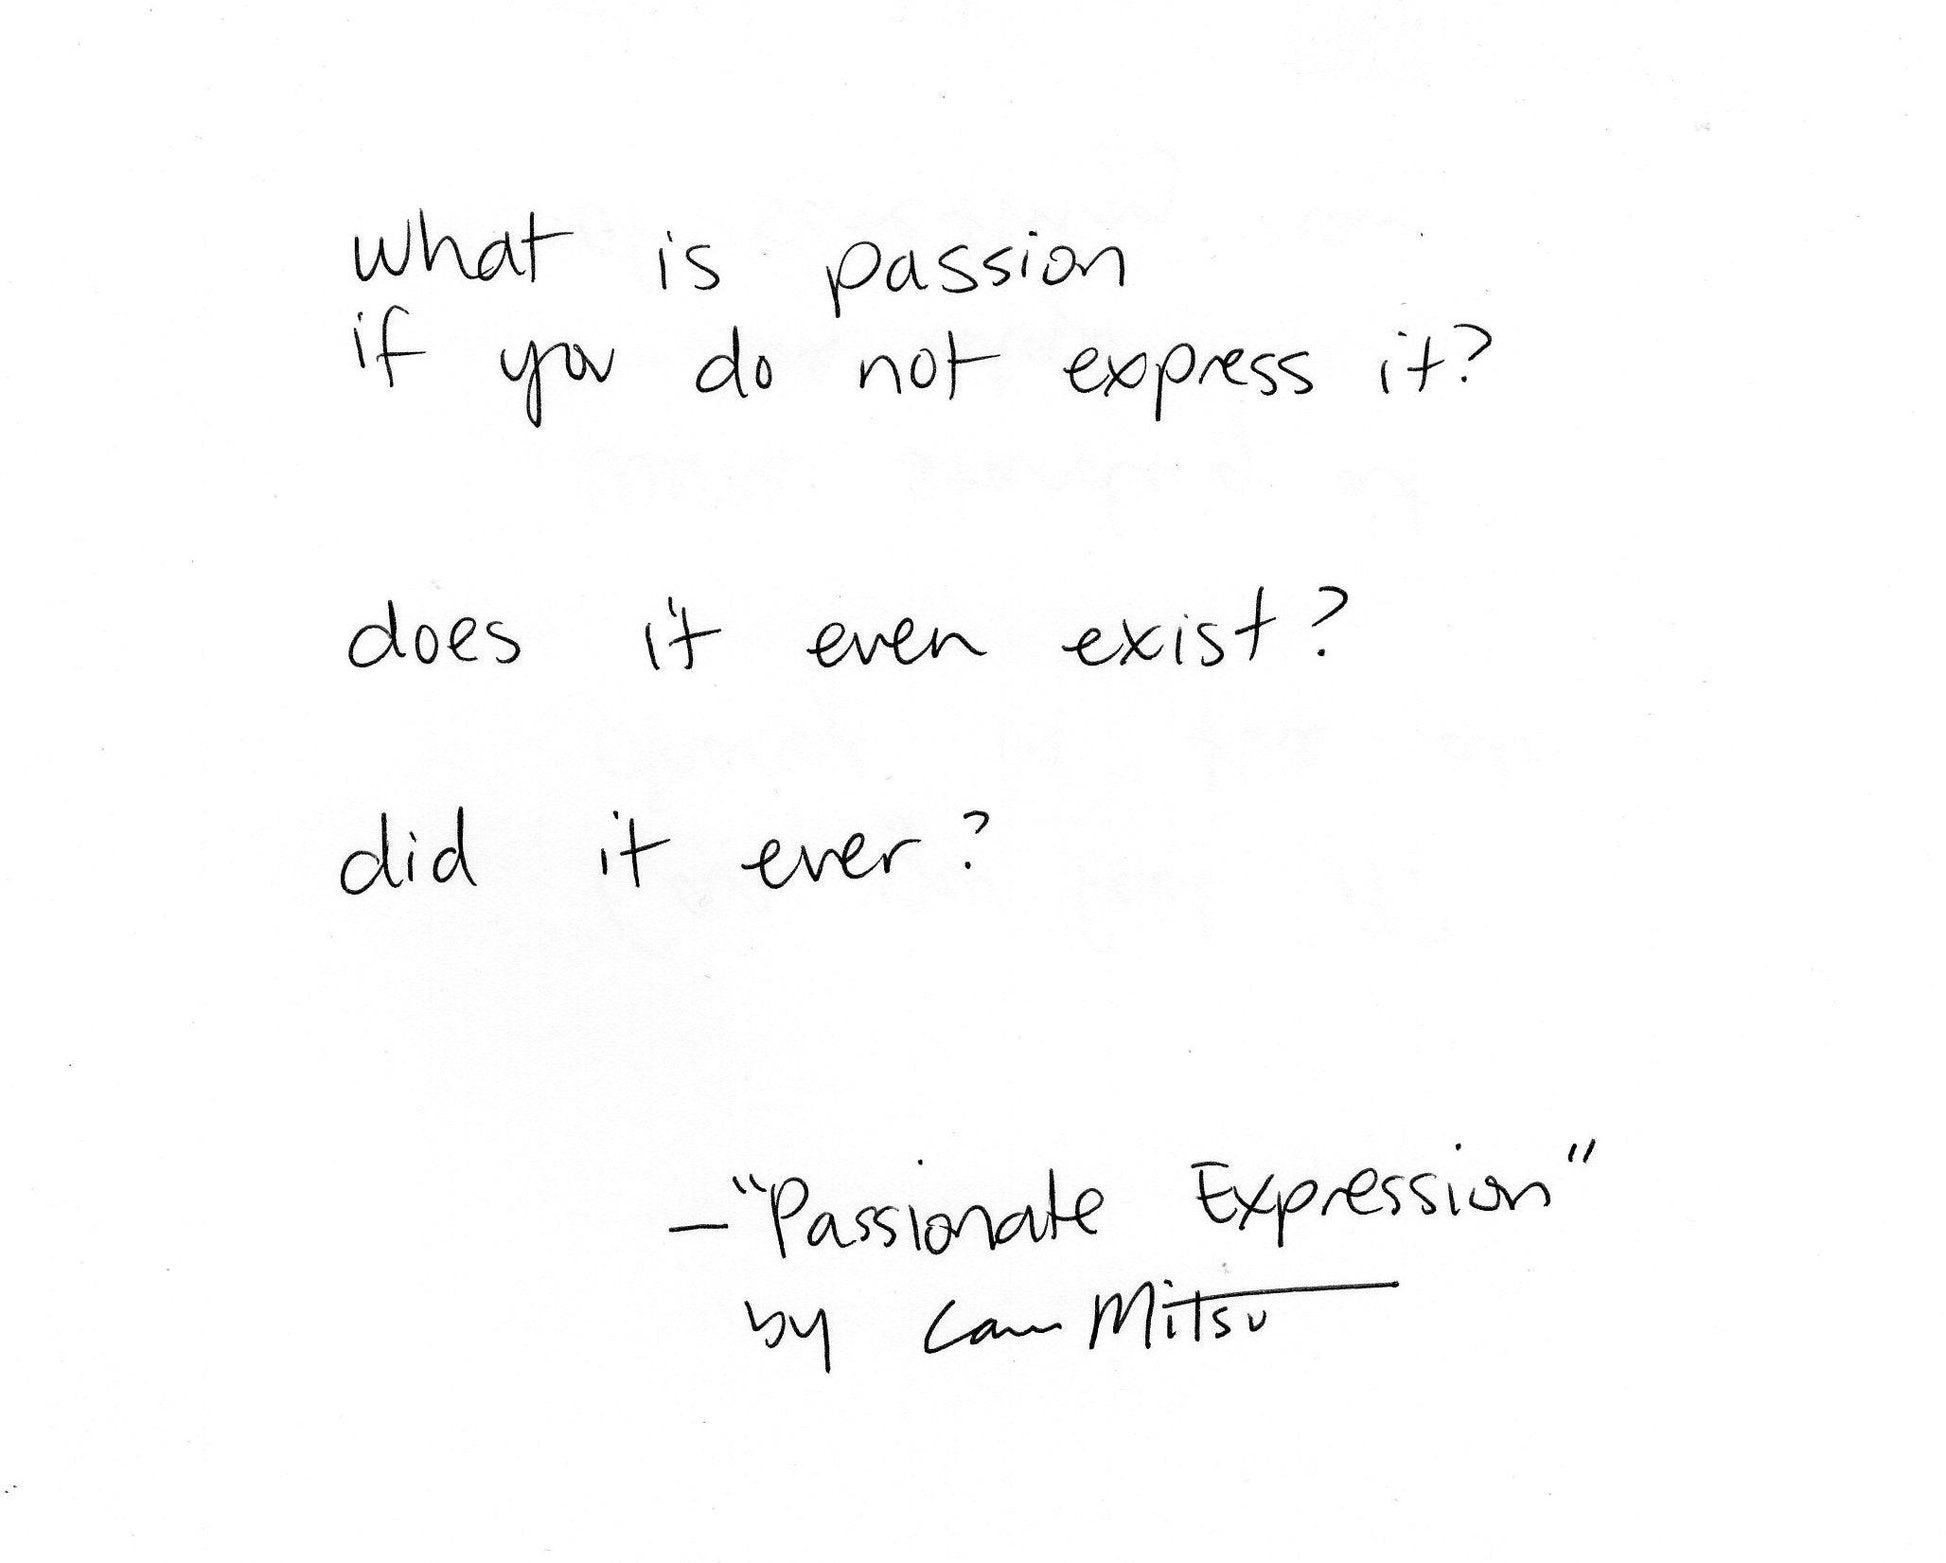 what is passion
if you do not express it?
does it even exist?
did it ever?
—"Passionate Expression"
by Cam Mitsu